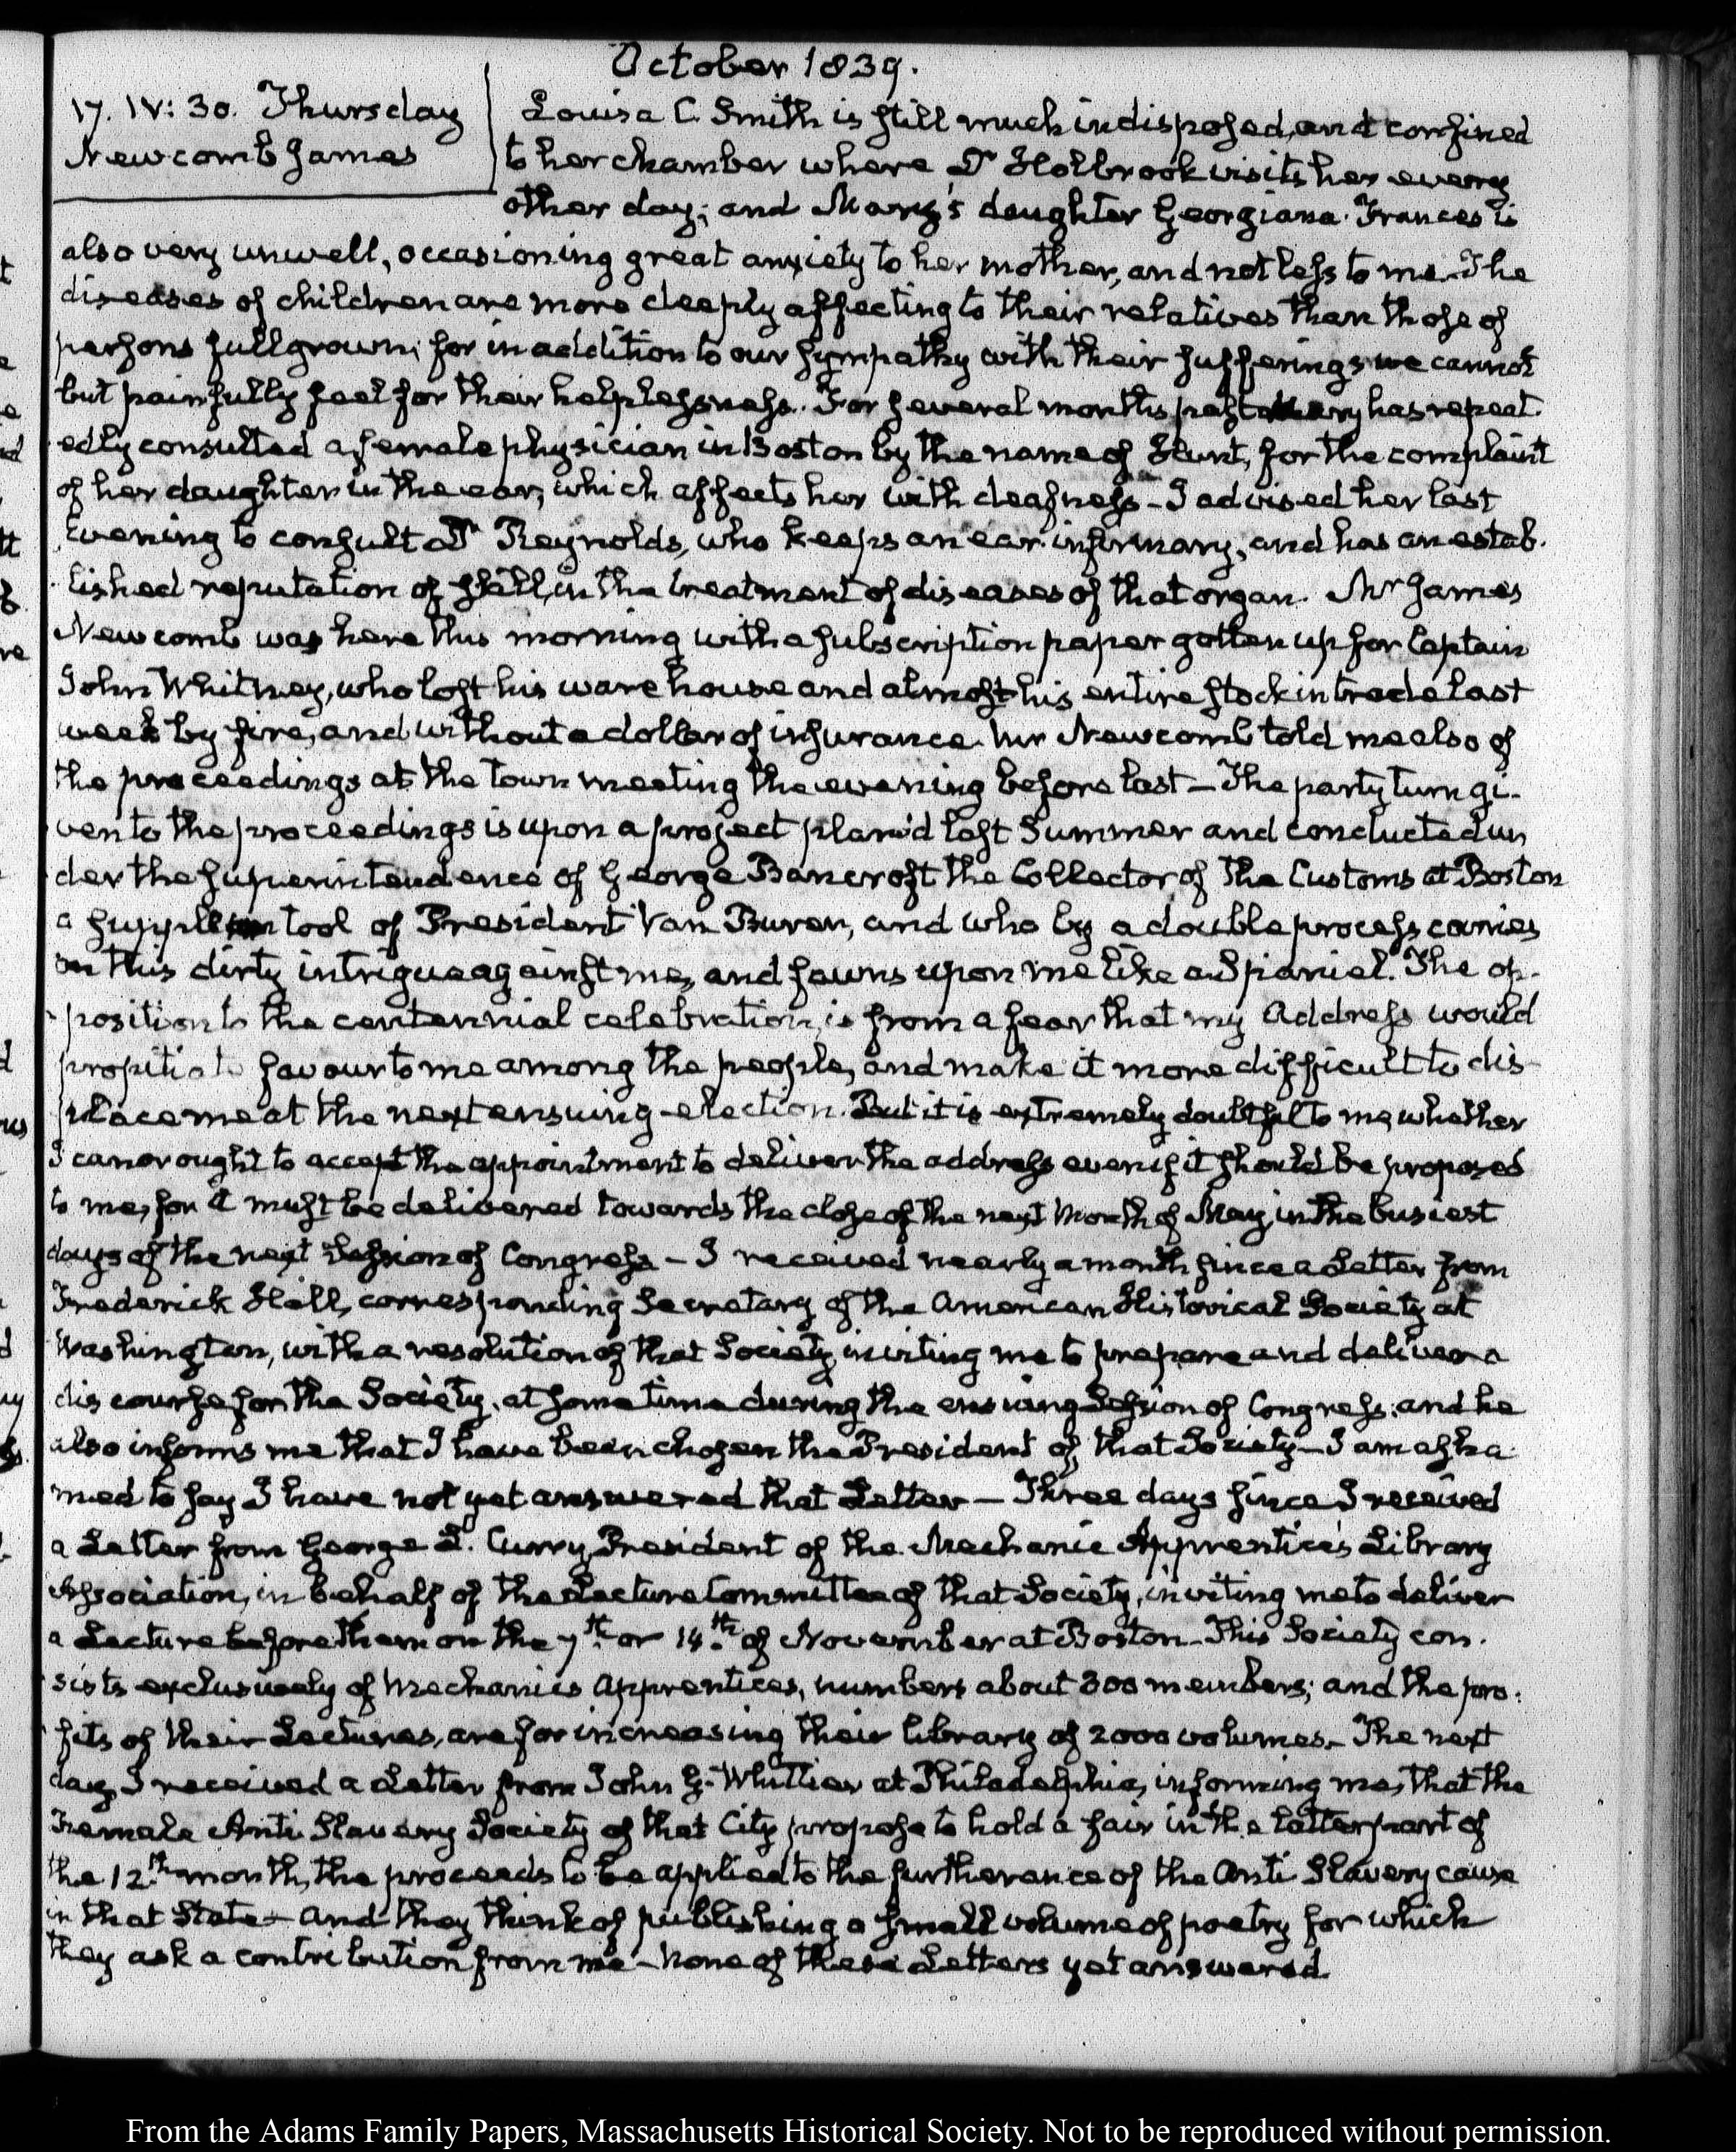 October 1839.
17. IV: 30. Thursday
Newcomb James
Louisa C. Smith is still much indisposed, and confined
to her chamber where Dr Holbrook visits her every
other day; and Mary's daughter Georgiana Frances is
also very unwell, occasioning great anxiety to her mother, and not less to me. The
diseases of children are more deeply affecting to their relatives than those of
persons full grown; for in addition to our sympathy with their sufferings we cannot
but painfully feel for their helplessness. For several months past Mary has repeat-
edly consulted a female physician in Boston by the name of Hunt, for the complaint
of her daughter in the ear, which affects her with deafness - I advised her last
Evening to consult Dr Reynolds, who keeps an ear infirmary, and has an estab-
lished reputation of skill, in the treatment of diseases of that organ. Mr James
Newcomb was here this morning with a subscription paper gotten up for Captain
John Whitney, who lost his warehouse and almost his entire stock in trade last
week by fire, and without a dollar of insurance. Mr Newcomb told me also of
the proceedings at the town meeting the evening before last - The party turn gi-
ven to the proceedings is upon a project plann'd last Summer and conducted un
der the superintendence of George Bancroft the Collector of the Customs at Boston
a supple tool of President Van Buren, and who by a double process carries
on this dirty intrigue against me, and fawns upon me like a Spaniel. The op-
position to the centennial celebration, is from a fear that my Address would
propitiate favour to me among the people, and make it more difficult to dis-
place me at the next ensuing election. But it is extremely doubtful to me whether
I can or ought to accept the appointment to deliver the address even if it should be proposed
to me, for it must be delivered towards the close of the next Month of May, in the busiest
days of the next Session of Congress - I received nearly a month since a Letter from
Frederick Hall, corresponding Secretary of the American Historical Society at
Washington, with a resolution of that Society inviting me to prepare and deliver a
discourse for the Society, at some time during the ensuing Session of Congress, and he
also informs me that I have been chosen the President of that Society - I am asha-
med to say I have not yet answered that Letter - Three days since I received
a Letter from George L. Curry, President of the Mechanic Apprentices Library
Association, in behalf of the Lecture Committee of that Society, inviting me to deliver
a Lecture before them on the 7th or 14th of November at Boston - This Society con-
sists exclusively of Mechanics Apprentices, numbers about 300 members; and the pro-
fits of their Lectures, are for increasing their library of 2000 volumes. - The next
day, I received a Letter from John G. Whittier at Philadelphia, informing me, that the
Female Anti Slavery Society of that City propose to hold a fair in the latter part of
the 12th month, the proceeds to be applied to the furtherance of the Anti Slavery cause
in that State - and they think of publishing a small volume of poetry for which
they ask a contribution from me - None of these Letters yet answered.
From the Adams Family Papers, Massachusetts Historical Society. Not to be reproduced without permission.